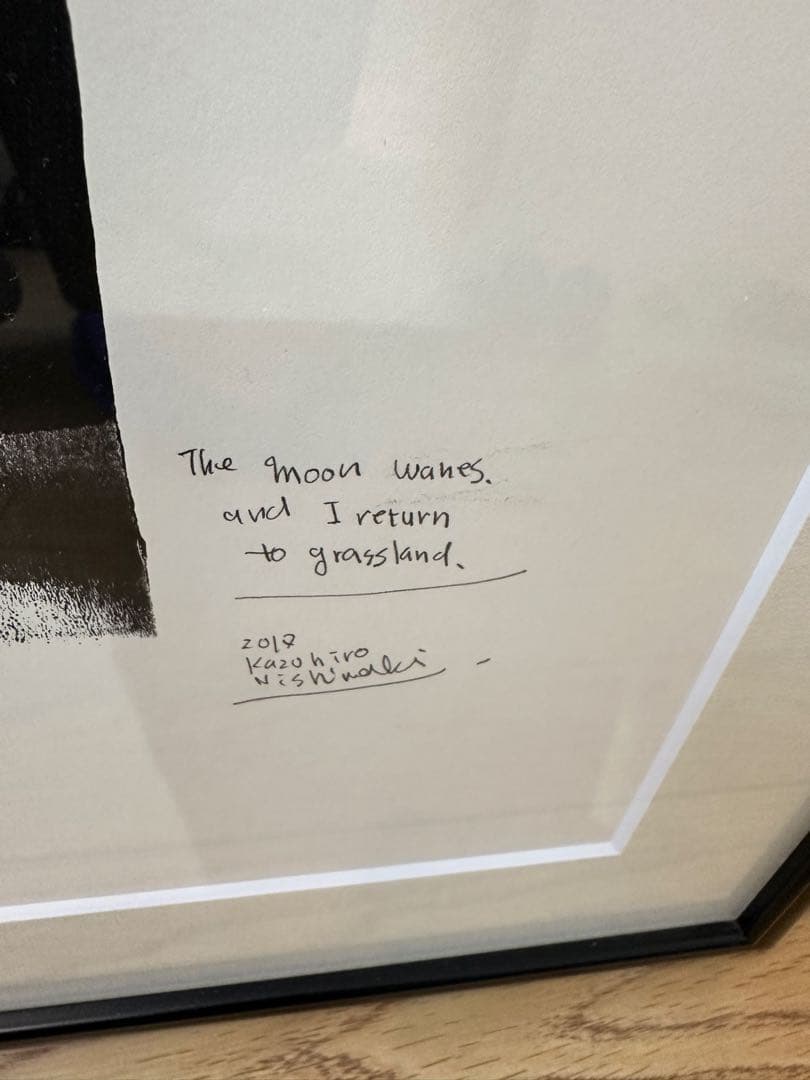 The moon wanes.
and I return
to grassland.
2018
Kazuhiro
Nishiwaki